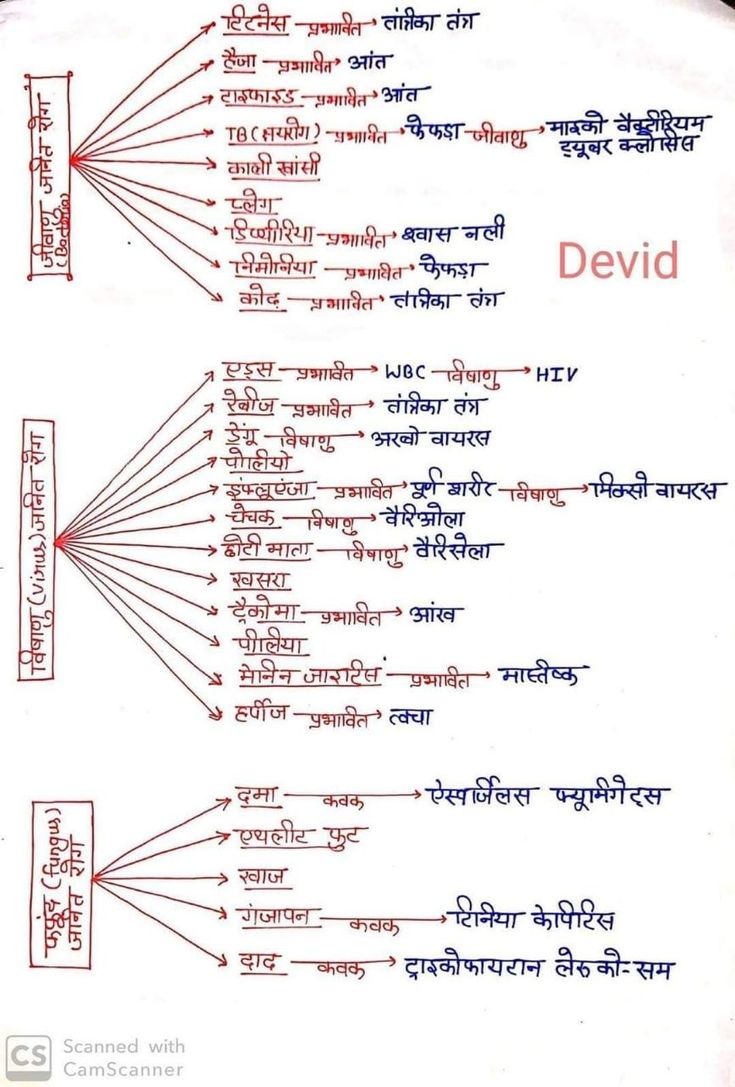 जीवाणु जनित रोग
(Bacteria)
टिटनेस प्रभावित तांत्रिका तंत्र
हैजा प्रभावित आंत
टाइफाइड प्रभावित आंत
TB (क्षयरोग) प्रभावित फेफड़ा जीवाणु माइको बैक्टीरियम
ट्यूबर क्लोसिस
काली खांसी
प्लेग
डिप्थीरिया प्रभावित श्वास नली
Devid
निमोनिया प्रभावित फेफड़ा
कोढ़ प्रभावित तांत्रिका तंत्र
विषाणु (virus) जनित रोग
एड्स प्रभावित WBC विषाणु HIV
रेबीज प्रभावित तांत्रिका तंत्र
डेंगू विषाणु अरबो वायरस
पोलियो
इंफ्लूएंजा प्रभावित पूर्ण शरीर विषाणु मिक्सो वायरस
चेचक विषाणु वैरिओला
छोटी माता विषाणु वैरिसेला
खसरा
ट्रैकोमा प्रभावित आंख
पीलिया
मेनिन जाइटिस प्रभावित मास्तिष्क
हर्पीज प्रभावित त्वचा
फफूंद (fungus)
जनित रोग
दमा कवक ऐस्पर्जिलस फ्यूमिगेट्स
एथलीट फुट
खाज
गंजापन कवक टिनिया केपिटिस
दाद कवक ट्राइकोफायटान
CS Scanned with
CamScanner